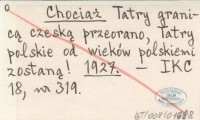 Chociaż Tatry grani-
cą czeską przeorano, Tatry
polskie od wieków polskiemi
zostaną! 1927. — IKC
18, nr 319.